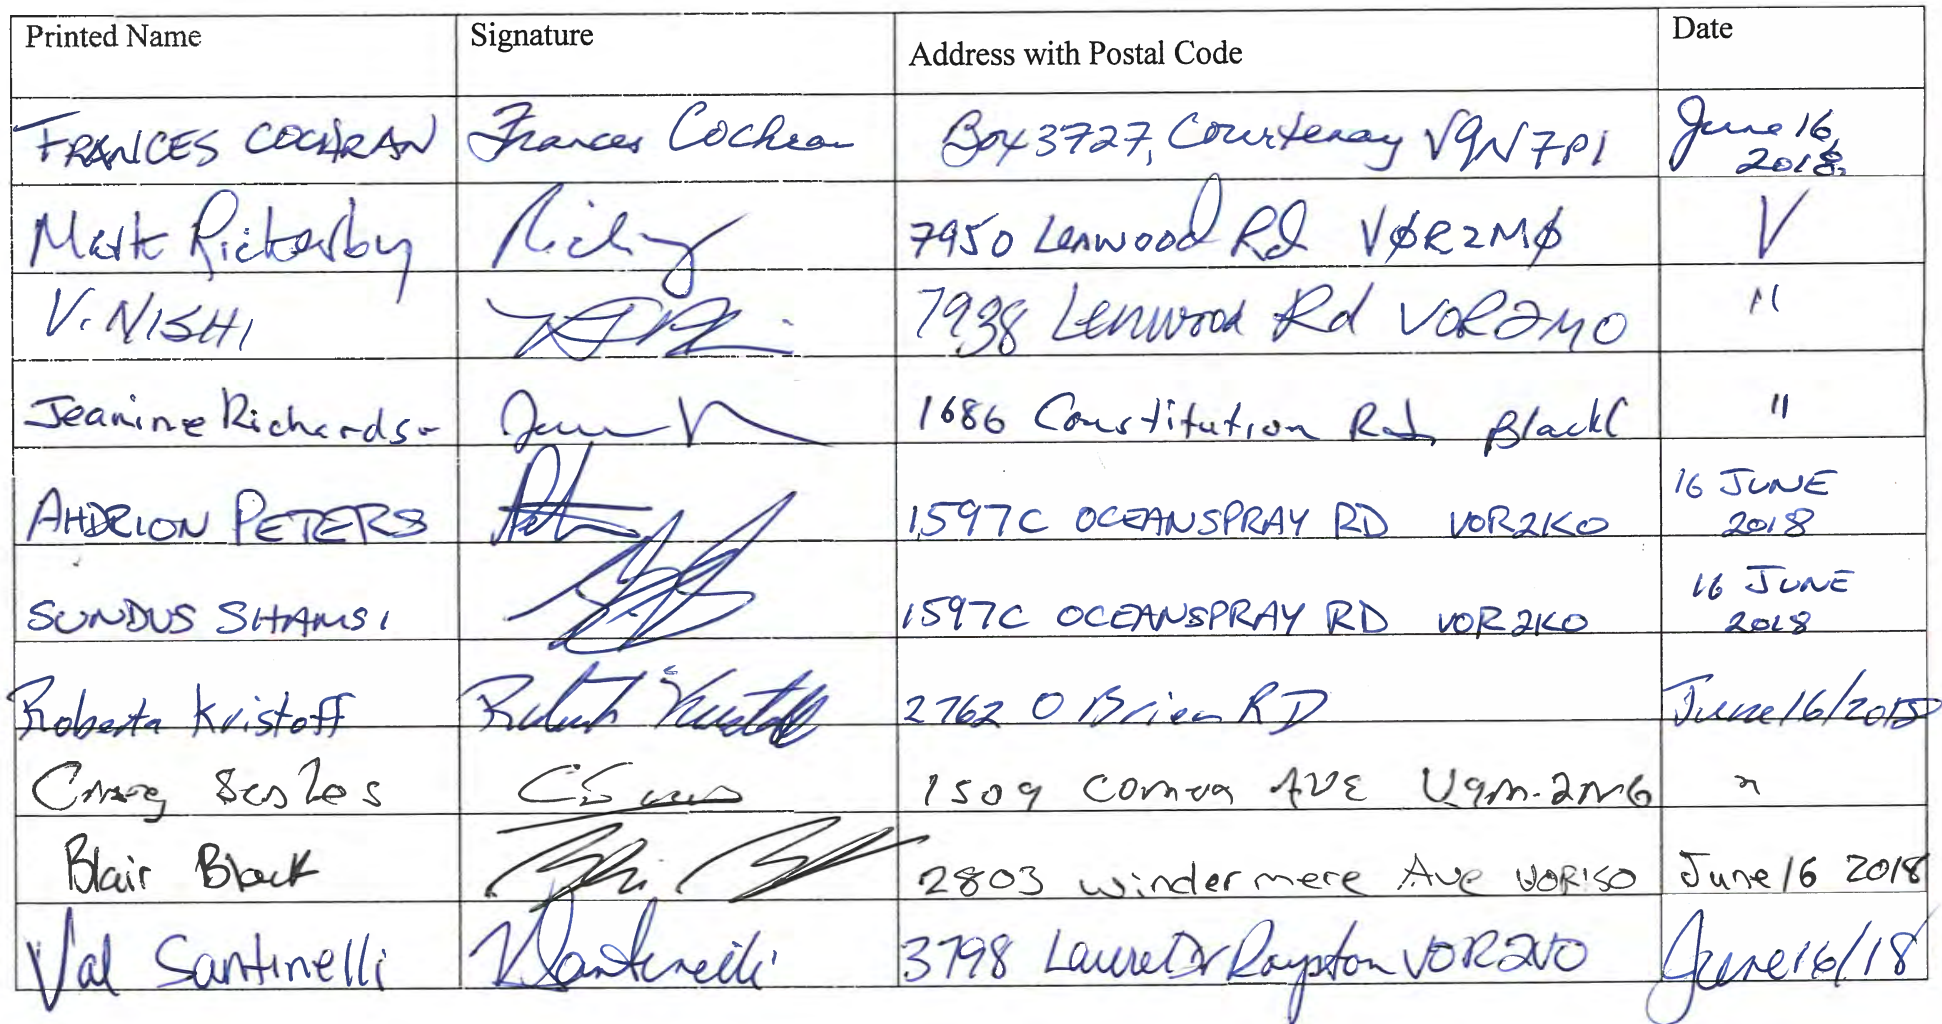 Printed Name Signature Address with Postal Code Date
FRANCES COCHRAN Frances Cochran Box 3727, Courtenay V9N7P1 June 16, 2018.
Mark Rickerby 7950 Lenwood Rd VØR2MØ V
V. NISHI 7938 Lenwood Rd V0R2M0 "
Jeanine Richardson 1686 Constitution Rd, BlackC "
AHDRION PETERS 1597C OCEANSPRAY RD V0R2K0 16 JUNE 2018
SUNDUS SHAMSI 1597C OCEANSPRAY RD V0R2K0 16 JUNE 2018
Roberta Kristoff 2762 O Brien RD June 16/2018
Craig 1509 Comox AVE V9M-2M6 "
Blair Black 2803 windermere Ave V0R1S0 June 16 2018
Val Santinelli VSantinelli 3798 Laurel Dr Royston V0R2V0 June 16/18